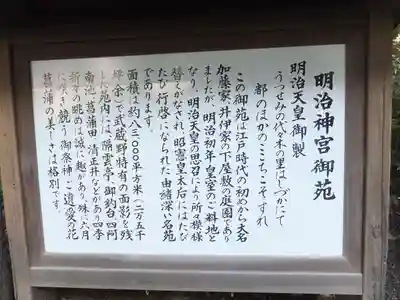 明治神宮御苑
明治天皇御製
うつせみの代々木の里はしづかにて
都のほかのここちこそすれ
この御苑は江戸時代の初めから大名
加藤家、井伊家の下屋敷の庭園であり
ましたが、明治初年皇室のご料地と
なり、明治天皇の思召により所々模様
替えがなされ、昭憲皇太后にはたび
たび行啓になられた由緒深い名苑
であります。
面積は約八三〇〇〇平方米(二万五千
坪余)で武蔵野特有の面影を残
した苑内には、隔雲亭、御釣台、四阿
南池、菖蒲田、清正井などがあり四季
折々の眺めは誠に趣があり、殊に六月
に咲き競う御祭神ご遺愛の花
菖蒲の美しさは格別です。